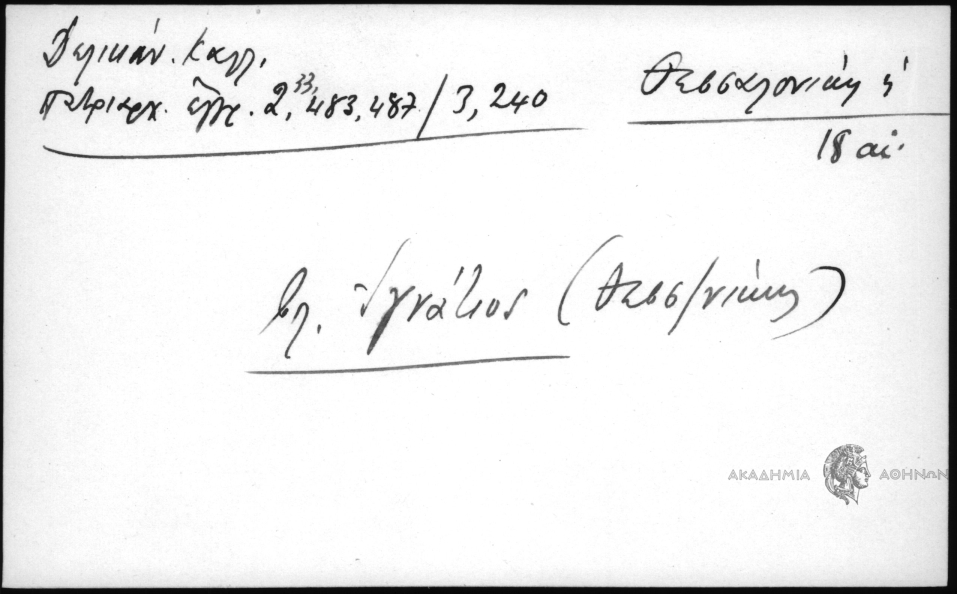 Δελικάν. Καλλ.
Πατριαρχ. ἔγγρ. 2, 33, 483, 487 / 3, 240
Θεσσαλονίκη ἡ
18 αἰ.
βλ. Ἰγνάτιος (Θεσσ/νίκης)
ΑΚΑΔΗΜΙΑ ΑΘΗΝΩΝ